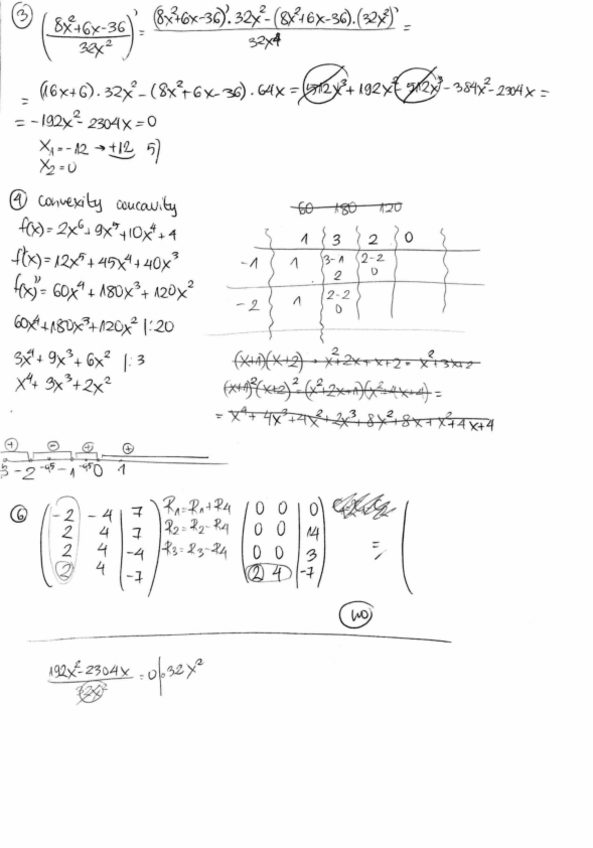 ③ (8x²+6x-36 / 32x²)' = (8x²+6x-36)'·32x²-(8x²+6x-36)·(32x²)' / 32x4 =
= (16x+6)·32x²-(8x²+6x-36)·64x = 512x³+192x²-512x³-384x²-2304x =
= -192x²-2304x=0
x₁=-12 → +12 5)
x₂=0
④ convexity concavity
f(x)=2x⁶+9x⁵+10x⁴+4
f'(x)=12x⁵+45x⁴+40x³
f(x)''=60x⁴+180x³+120x²
60x⁴+180x³+120x² |:20
3x⁴+9x³+6x² |:3
x⁴+3x³+2x²
60 180 120
1 3 2 0
-1 1 3-1 2-2
2 0
-2 1 2-2
0
(x+1)(x+2) = x²+2x+x+2 = x²+3x+2
(x+1)²(x+2)²=(x²+2x+1)(x²+4x+4)=
= x⁴+4x³+4x²+2x³+8x²+8x+x²+4x+4
+ - + +
-2 -1,5 -1 -0,5 0 1
⑥ (-2 -4 | 7) R₁=R₁+R₄ (0 0 | 0)
(2 4 | 7) R₂=R₂-R₄ (0 0 | 14)
(2 4 | -4) R₃=R₃-R₄ (0 0 | 3) = (
(2 4 | -7) (2 4 | -7)
NO
192x²-2304x / 32x² = 0 |·32x²